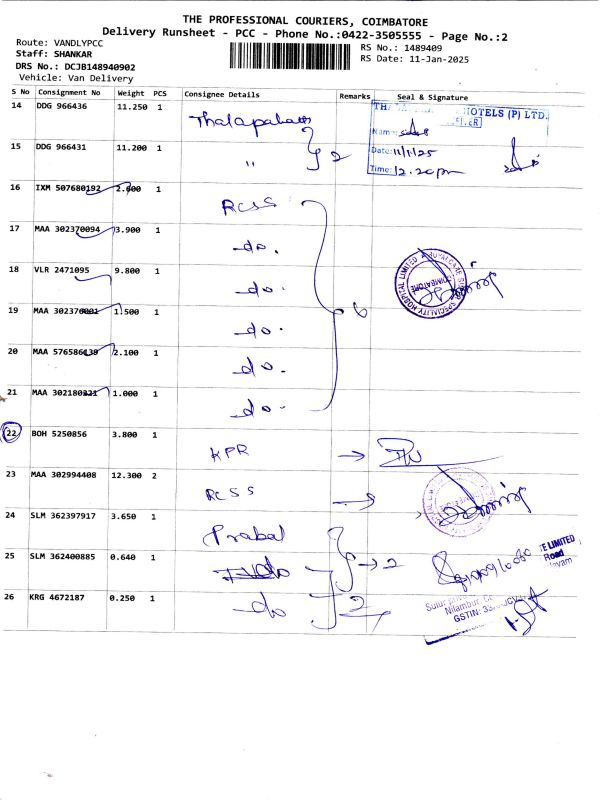 THE PROFESSIONAL COURIERS, COIMBATORE
Delivery Runsheet - PCC - Phone No.:0422-3505555 - Page No.:2
Route: VANDLYPCC
Staff: SHANKAR
DRS No.: DCJB148940902
Vehicle: Van Delivery
RS No.: 1489409
RS Date: 11-Jan-2025
S No Consignment No Weight PCS Consignee Details Remarks Seal & Signature
14 DDG 966436 11.250 1
HOTELS (P) LTD.
Name:
15 DDG 966431 11.200 1 " 2
Date: 11/1/25
Time: 12.20pm
16 IXM 507680192 2.600 1 RCSS
17 MAA 302370094 3.900 1 do.
18 VLR 2471095 9.800 1 do.
19 MAA 302370001 1.500 1 do. 6
20 MAA 576586139 2.100 1 do.
21 MAA 302180321 1.000 1 do.
22 BOH 5250856 3.800 1 KPR →
23 MAA 302994408 12.300 2 RCSS →
24 SLM 362397917 3.650 1 Prabal
25 SLM 362400885 0.640 1 do → 2
TE LIMITED
Road
26 KRG 4672187 0.250 1 do 2
Nilambur,
GSTIN: 33